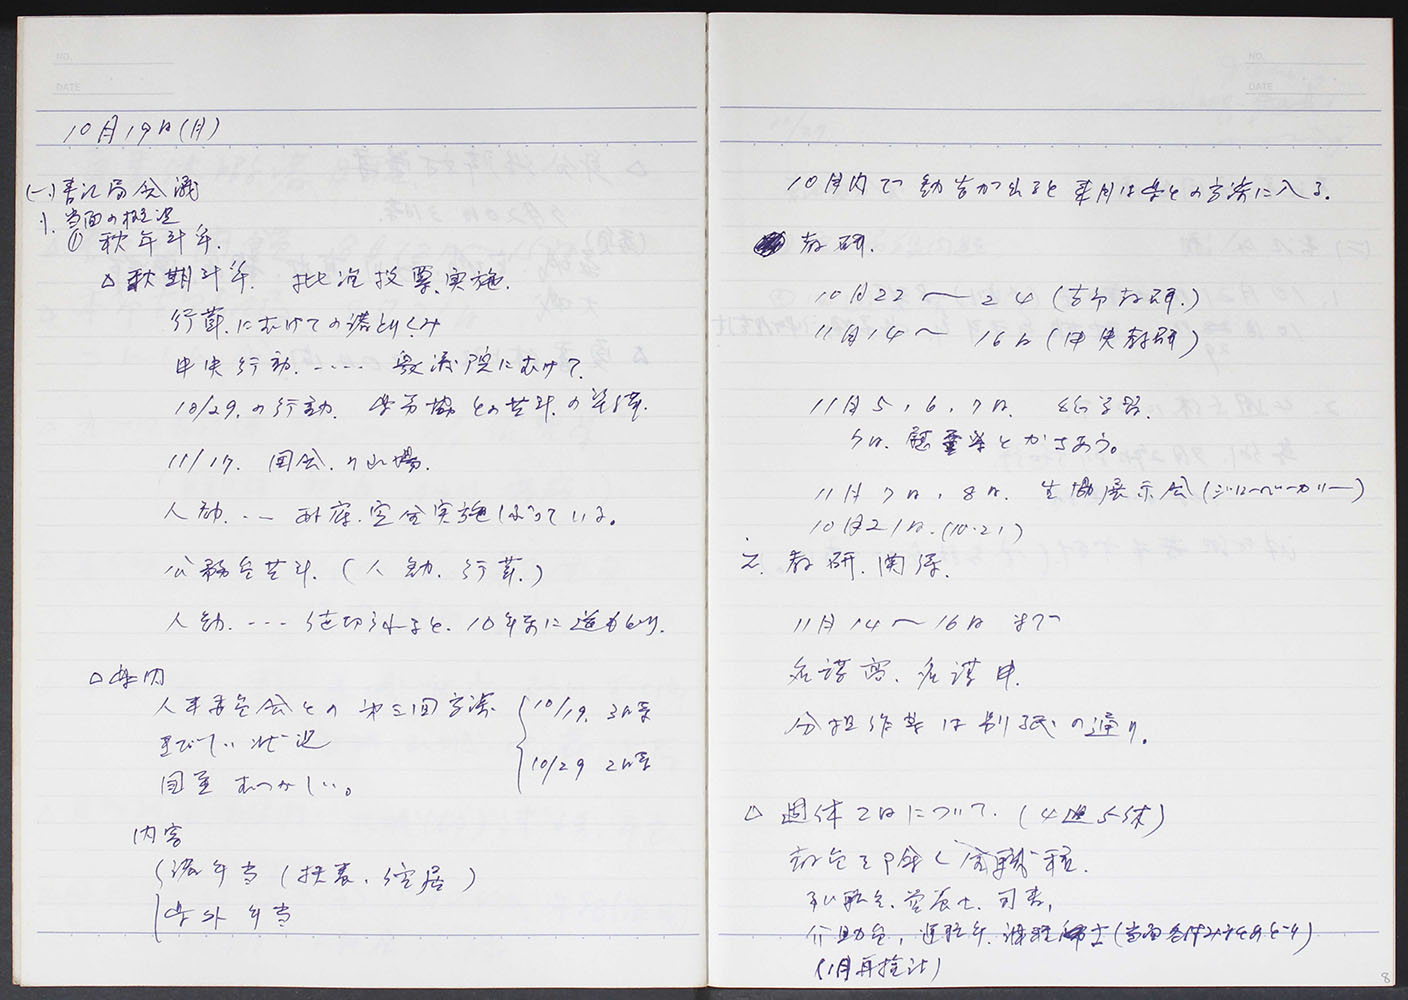 NO.
DATE
10月19日(月)
(一)書記局会議
1. 当面の状況
① 秋年斗争.
△秋期斗争. 批准投票.実施.
行革.にむけての済とりくみ
中央行動..... 衆議院にむけて.
10/29.の行動. 労協との共斗.の準備.
11/17. 国会.の山場.
人勧... 完全実施しぶっている。
公務員共斗. (人勧. 行革.)
人勧.... 値切られると. 10年前に逆もどり.
△県内
人事委員会との 第三回交渉 10/19. 3時
きびしい状況
10/29 2時
回答 むつかしい。
内容
諸手当 (扶養. 住居)
県外手当
NO.
DATE
10月内で 勧告が出ると 来月は県との交渉に入る.
教研.
10月22〜24 (支部教研.)
11月14〜16日 (中央教研)
11月5, 6, 7日.
とかさあう。
11月7日, 8日. 生協展示会 (ジローベーカリー)
10月21日.(10.21)
2. 教研. 関係.
11月14〜16日 まで
名護高. 名護中.
分担作業は別紙の通り.
△ 週休2日について. (4週5休)
教員を除く全職種.
栄養士. 司書,
介助員, 運転手.
(11月再検討)
8